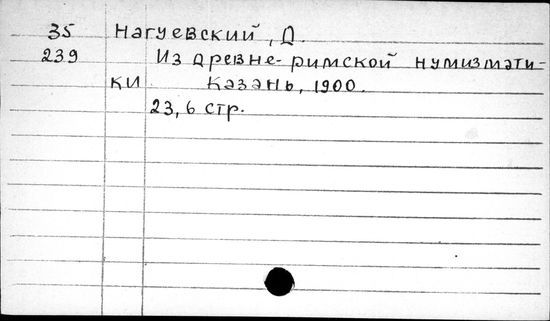 35 Нагуевский, Д.
239 Из древне-римской нумизмати-
ки Казань, 1900.
23, 6 стр.